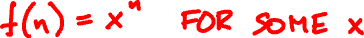 f(n) = xⁿ FOR SOME x